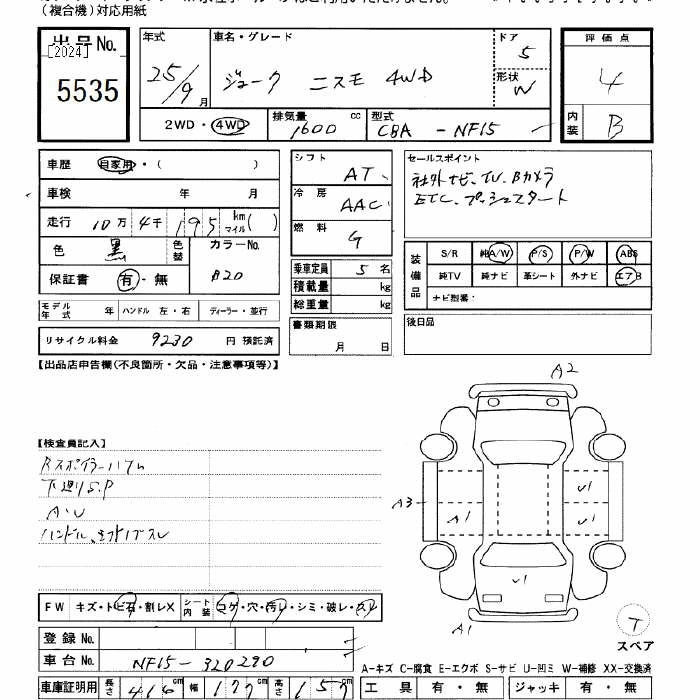 (複合機)対応用紙
出品No.
[2024]
5535
年式 25/9月
車名・グレード ジューク ニスモ 4WD
ドア 5
形状 W
2WD・4WD
排気量 1600 cc
型式 CBA - NF15
評価点 4
内装 B
車歴 自家用・( )
車検 年 月
走行 10万4千195 km マイル( )
色 黒 色替 カラーNo.
保証書 有・無 B20
モデル年式 年 ハンドル 左・右 ディーラー・並行
リサイクル料金 9230 円 預託済
シフト AT
冷房 AAC
燃料 G
乗車定員 5 名
積載量 kg
総重量 kg
書類期限
月 日
セールスポイント
社外ナビ、TV、Bカメラ
ETC、プッシュスタート
装備品
S/R 純A/W P/S P/W ABS
純TV 純ナビ 革シート 外ナビ エアB
ナビ型番:
後日品
【出品店申告欄(不良箇所・欠品・注意事項等)】
【検査員記入】
下廻りS.P
A・U
A2
A3
A1
U1
U1
U1
A1
T
スペア
FW キズ・トビ石・割レX シート内装 コゲ・穴・汚レ・シミ・破レ・スレ
登録No.
車台No. NF15-320290
A-キズ C-腐食 E-エクボ S-サビ U-凹ミ W-補修 XX-交換済
車庫証明用 長さ 416cm 幅 177cm 高さ 157cm
工具 有・無 ジャッキ 有・無